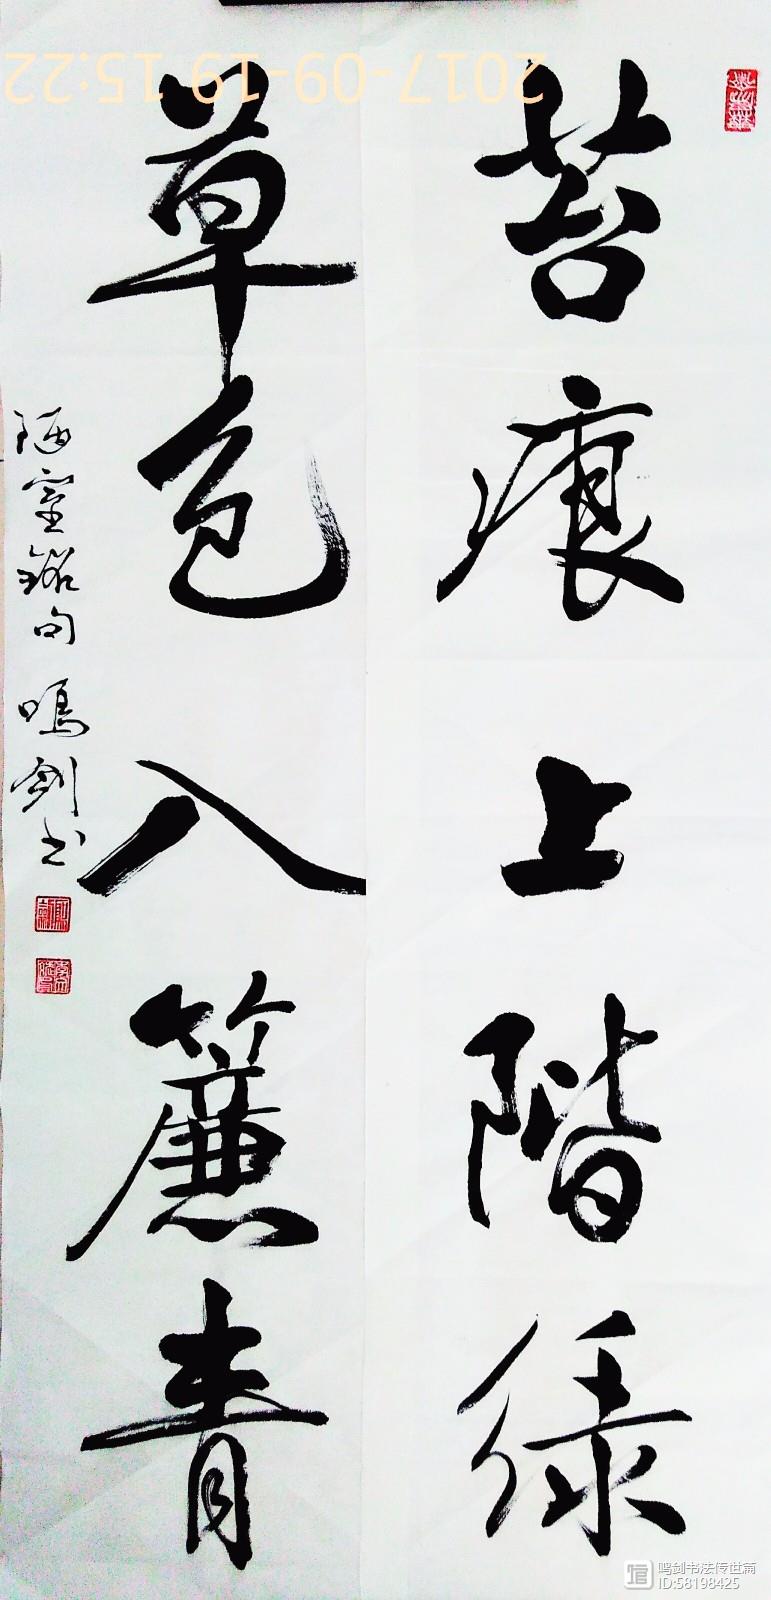 苔痕上階緑
草色入簾青
陋室銘句 鳴劍书
2017-09-19 15:22
鸣剑书法传世篇
ID:58198425